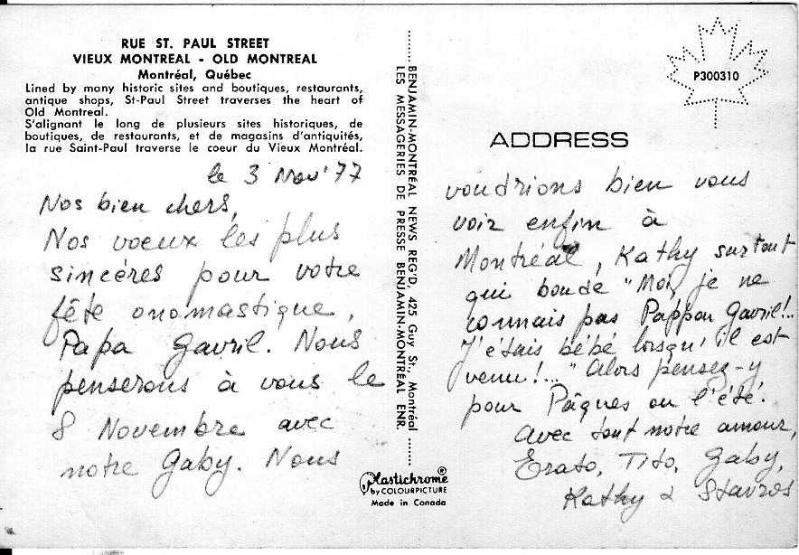 RUE ST. PAUL STREET
VIEUX MONTREAL - OLD MONTREAL
Montréal, Québec
Lined by many historic sites and boutiques, restaurants,
antique shops, St-Paul Street traverses the heart of
Old Montreal.
S'alignant le long de plusieurs sites historiques, de
boutiques, de restaurants, et de magasins d'antiquités,
la rue Saint-Paul traverse le coeur du Vieux Montréal.
le 3 Nov' 77
Nos bien chers,
Nos voeux les plus
sincères pour votre
fête onomastique,
Papa Gavril. Nous
penserons à vous le
8 Novembre avec
notre Gaby. Nous
BENJAMIN-MONTRÉAL NEWS REG'D, 425 Guy St., Montréal
LES MESSAGERIES DE PRESSE BENJAMIN-MONTRÉAL ENR.
Plastichrome®
by COLOURPICTURE
Made in Canada
P300310
ADDRESS
voudrions bien vous
voir enfin à
Montréal, Kathy surtout
qui boude "Moi, je ne
connais pas Pappou Gavril!..
J'étais bébé lorsqu'il est
venu!..." Alors pensez-y
pour Pâques ou l'été.
Avec tout notre amour,
Erato, Tito, Gaby,
Kathy & Stavros